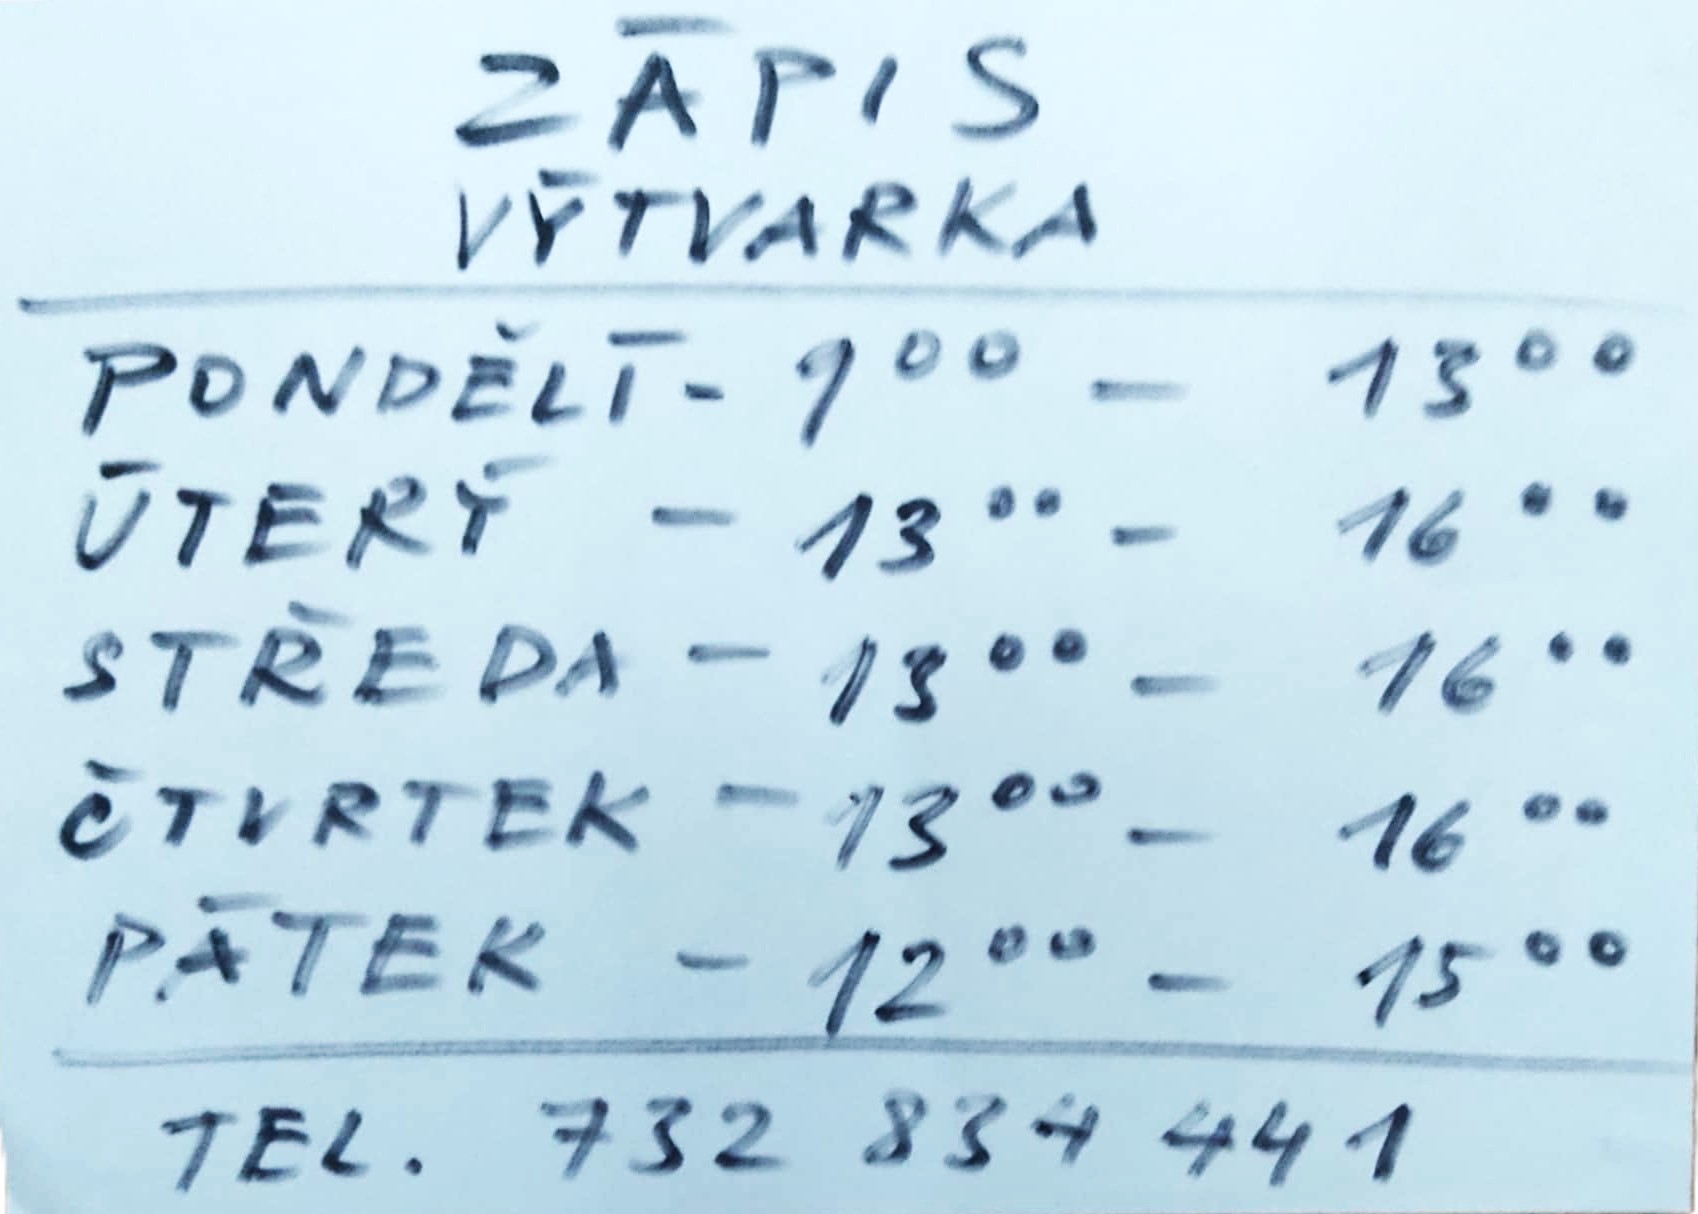 ZÁPIS
VÝTVARKA
PONDĚLÍ - 9⁰⁰ - 13⁰⁰
ÚTERÝ - 13⁰⁰ - 16⁰⁰
STŘEDA - 13⁰⁰ - 16⁰⁰
ČTVRTEK - 13⁰⁰ - 16⁰⁰
PÁTEK - 12⁰⁰ - 15⁰⁰
TEL. 732 834 441